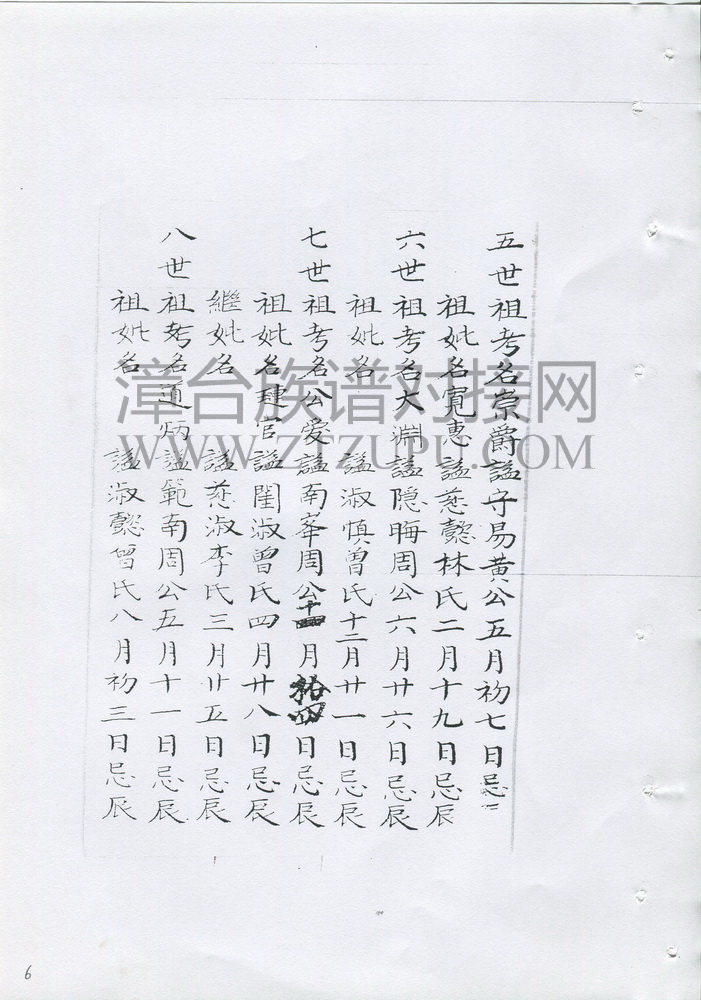 五世祖考名崇爵謚守易黄公五月初七日忌
祖妣名寬惠謚慈懿林氏二月十九日忌辰
六世祖考名大淵謚隠晦周公六月廿六日忌辰
祖妣名 謚淑慎曾氏十二月廿一日忌辰
七世祖考名公愛謚南峯周公月拾四日忌辰
祖妣名官謚閨淑曾氏四月廿八日忌辰
繼妣名 謚慈淑李氏三月廿五日忌辰
八世祖考名道炳謚範南周公五月十一日忌辰
祖妣名 謚淑懿曾氏八月初三日忌辰
漳台族谱对接网
WWW.ZTZUPU.COM
6